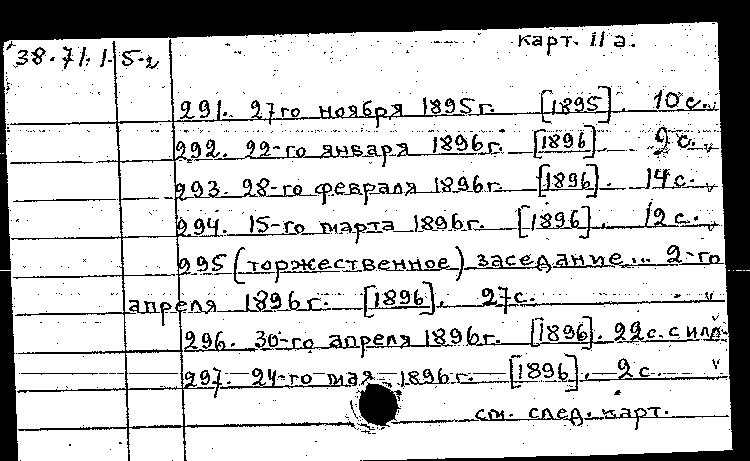 38.71.1.5-2 карт. 11а.
291. 27го ноября 1895г. [1895]. 10с.
292. 22-го января 1896г. [1896] 9с.
293. 28-го февраля 1896г. [1896]. 14с.
294. 15-го марта 1896г. [1896]. 12с.
295 (торжественное) заседание... 2-го
апреля 1896г. [1896]. 27с.
296. 30-го апреля 1896г. [1896]. 22с. с илл.
297. 24-го мая 1896г. [1896]. 2с.
см. след. карт.